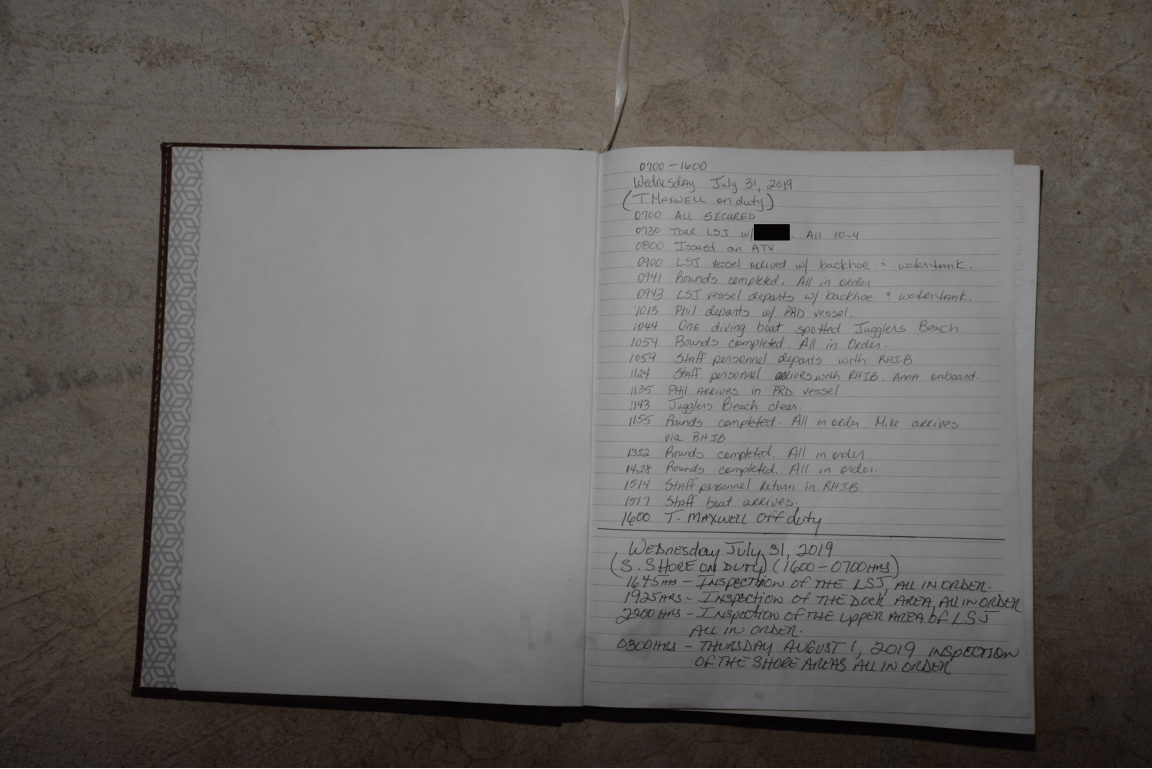 0700-1600
Wednesday July 31, 2019
(T. MAXWELL on duty)
0700 ALL SECURED
0730 TOUR LSJ w/ . All 10-4
0800 Issued an ATV
0900 LSJ vessel arrived w/ backhoe & watertank.
0941 Rounds completed. All in order
0943 LSJ vessel departs w/ backhoe & watertank.
1013 Phil departs w/ PRD vessel.
1044 One diving boat spotted Jugglers Beach
1054 Rounds completed. All in Order.
1059 Staff personnel departs with RHIB
1124 Staff personnel arrives with RHIB. AnnA onboard.
1135 Phil ARRIVES in PRD vessel
1143 Jugglers Beach clear.
1155 Rounds completed. All in order. Mike arrives
via RHIB
1322 Rounds completed. All in order.
1428 Rounds completed. All in order.
1514 Staff personnel Return in RHIB
1517 Staff boat arrives.
1600 T. MAXWELL Off duty
WEDNESDAY JULY 31, 2019
(S. SHORE ON DUTY) (1600-0700HRS)
1645HRS - INSPECTION OF THE LSJ, ALL IN ORDER.
1925HRS - INSPECTION OF THE DOCK AREA, ALL IN ORDER
2200HRS - INSPECTION OF THE UPPER AREA OF LSJ
ALL IN ORDER.
0300HRS - THURSDAY AUGUST 1, 2019 INSPECTION
OF THE SHORE AREAS ALL IN ORDER